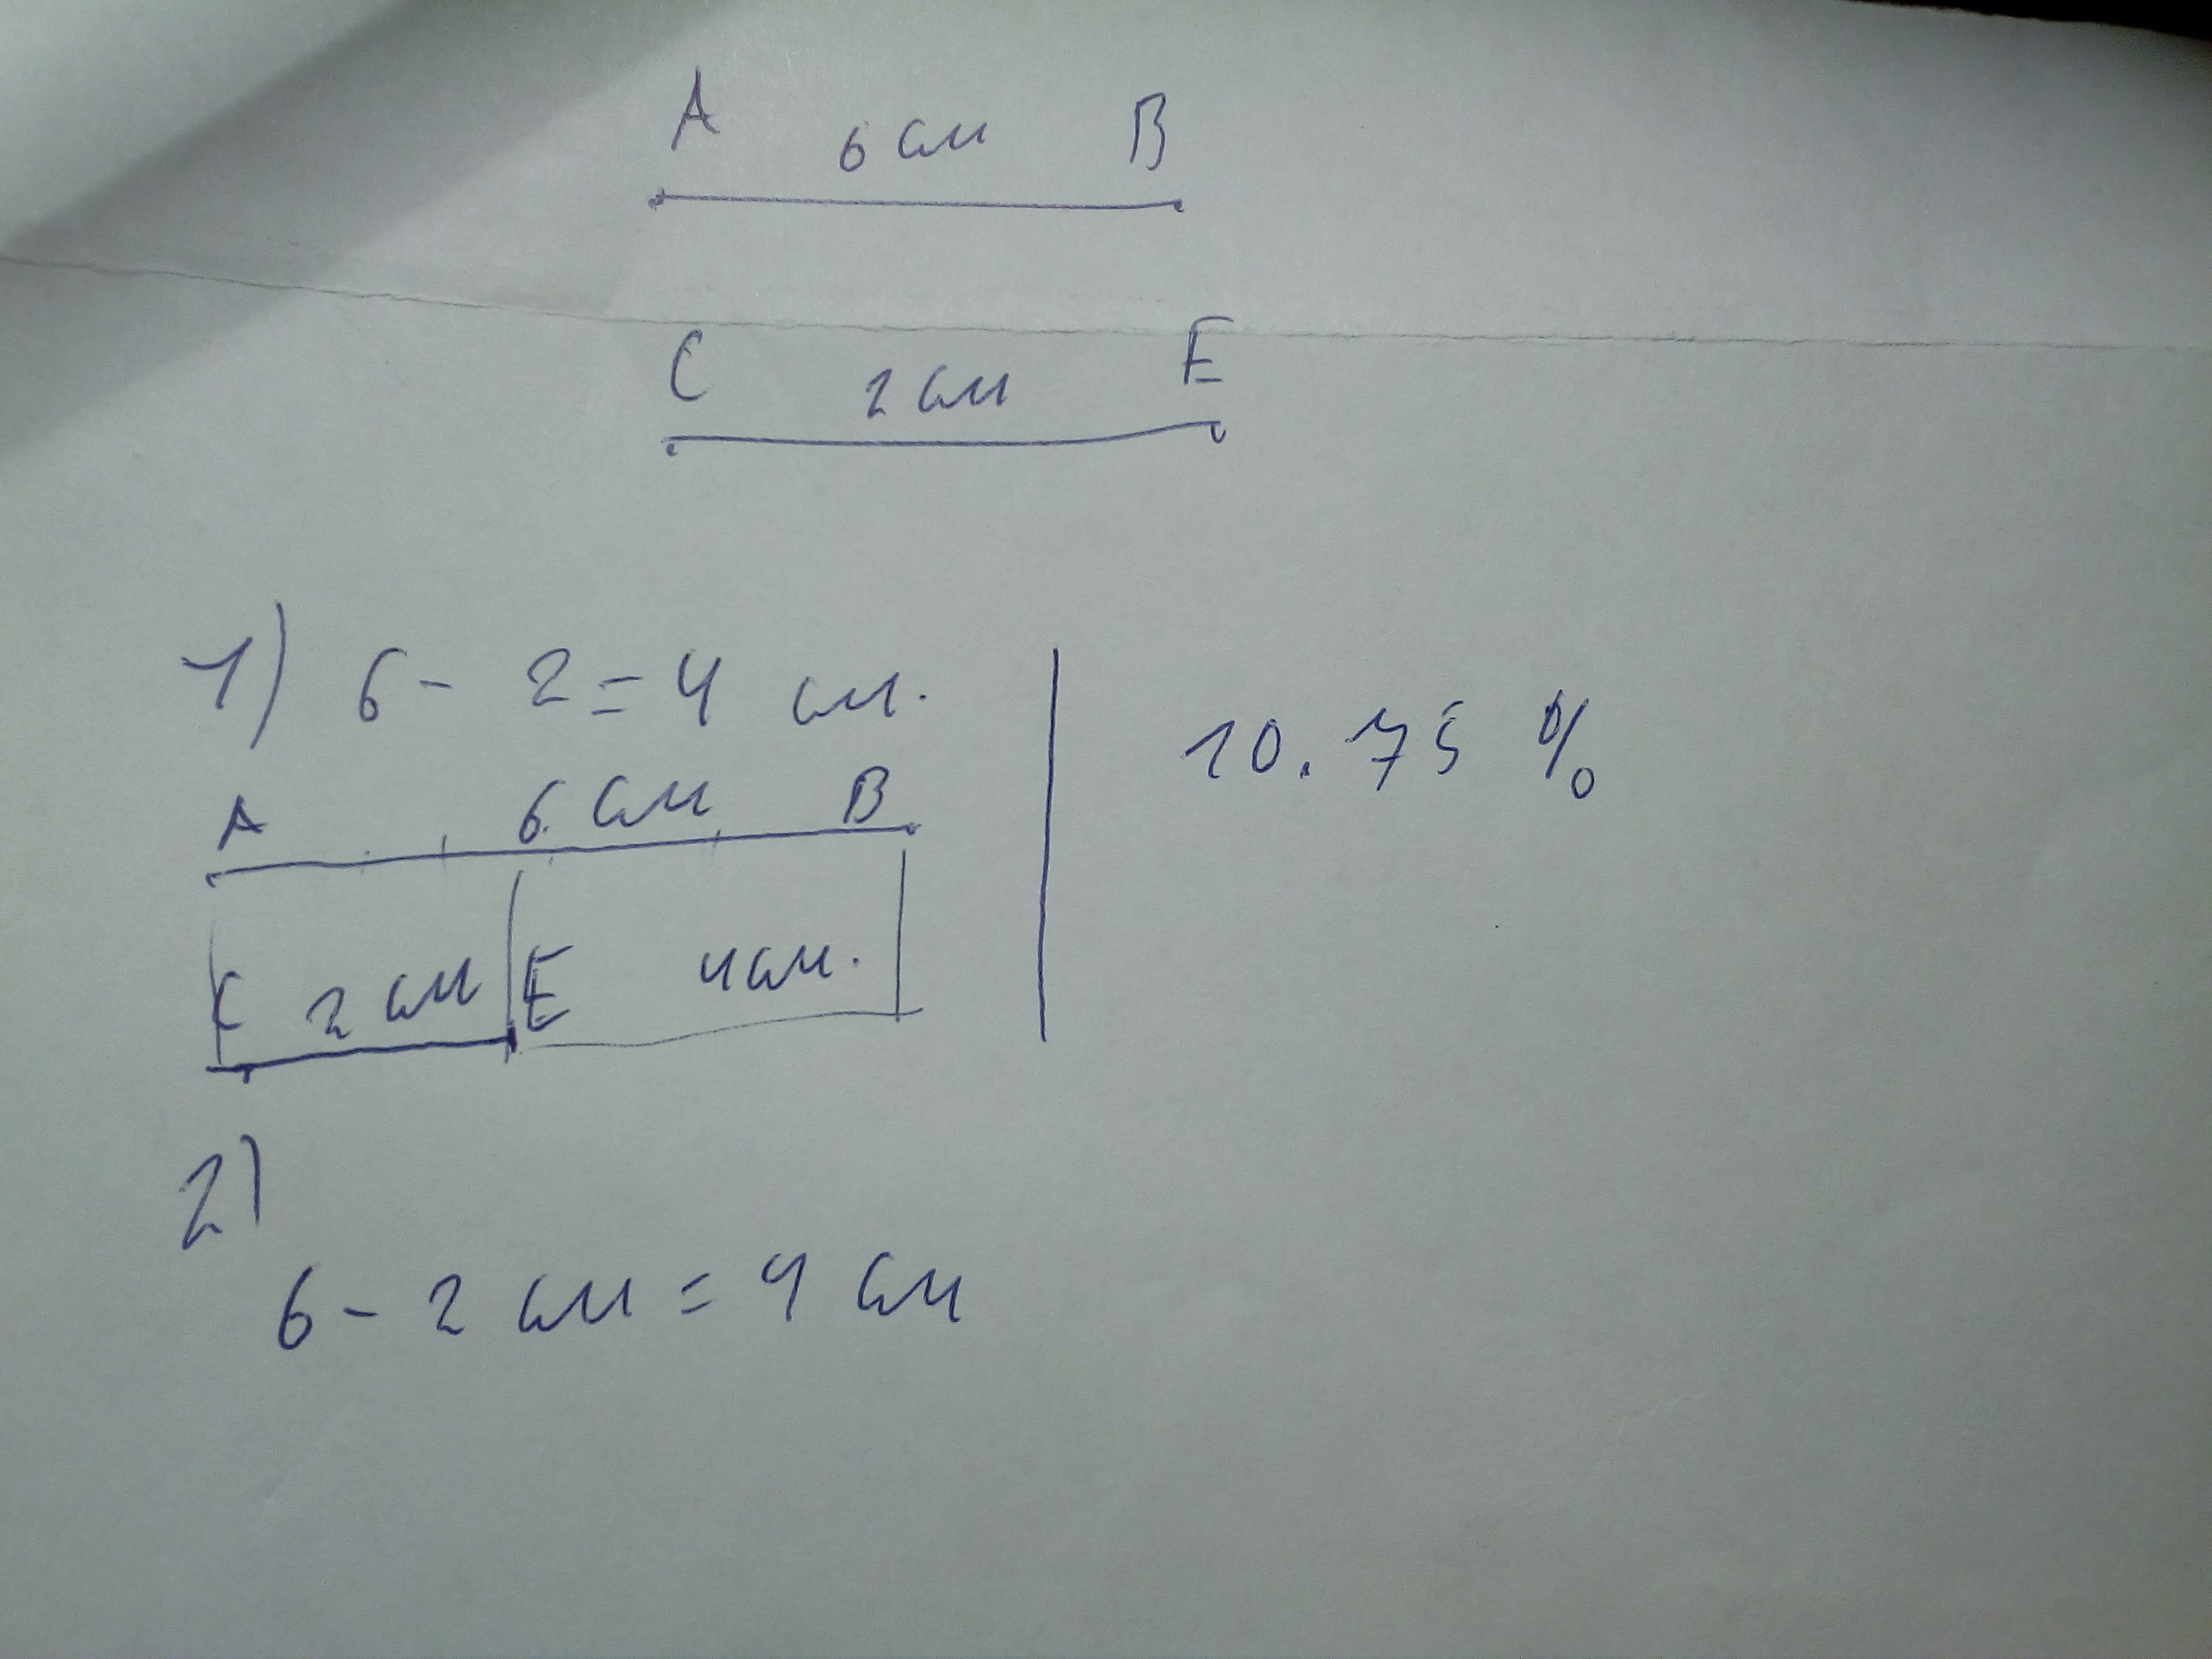 A 6 см B
C 2 см E
1) 6 - 2 = 4 см.
A 6 см B
C 2 см E 4 см.
10.75 %
2)
6 - 2 см = 4 см